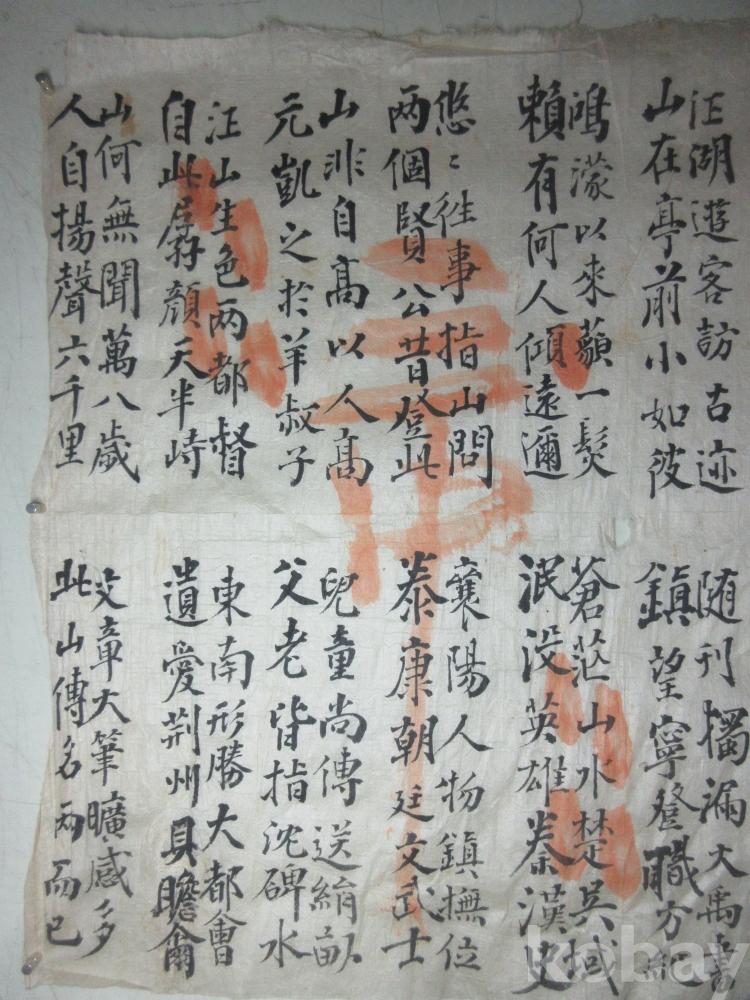 江湖遊客訪古迹
山在亭前小如彼
随刊獨漏大禹書
鎮望寧登職方紀
鴻濛以來藐一髮
賴有何人傾遠邇
蒼茫山水楚吳域
泯没英雄秦漢史
悠〻徃事指山問
两個賢公昔登此
襄陽人物鎮撫位
泰康朝廷文武士
山非自高以人高
元凱之於羊叔子
兒童尚傳送絹畝
父老皆指沈碑水
江山生色两都督
自此孱顔天半峙
東南形勝大都會
遺愛荆州具瞻爾
山何無聞萬八歲
人自揚聲六千里
文章大筆曠感多
此山傳名兩而已
kobay